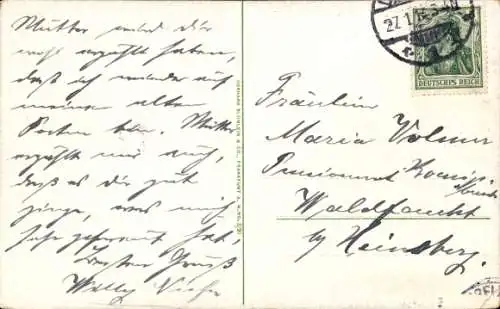 Mutter wird dir
wohl erzählt haben,
daß ich wieder auf
meinem alten
Posten bin. Mutter
erzählt mir auch,
daß es dir gut
ginge, was mich
sehr gefreut hat.
Besten Gruß
Willy
27.1.
DEUTSCHES REICH
Fräulein
Maria Volmer
Pensionat
Waldfeucht
by Heinsberg.